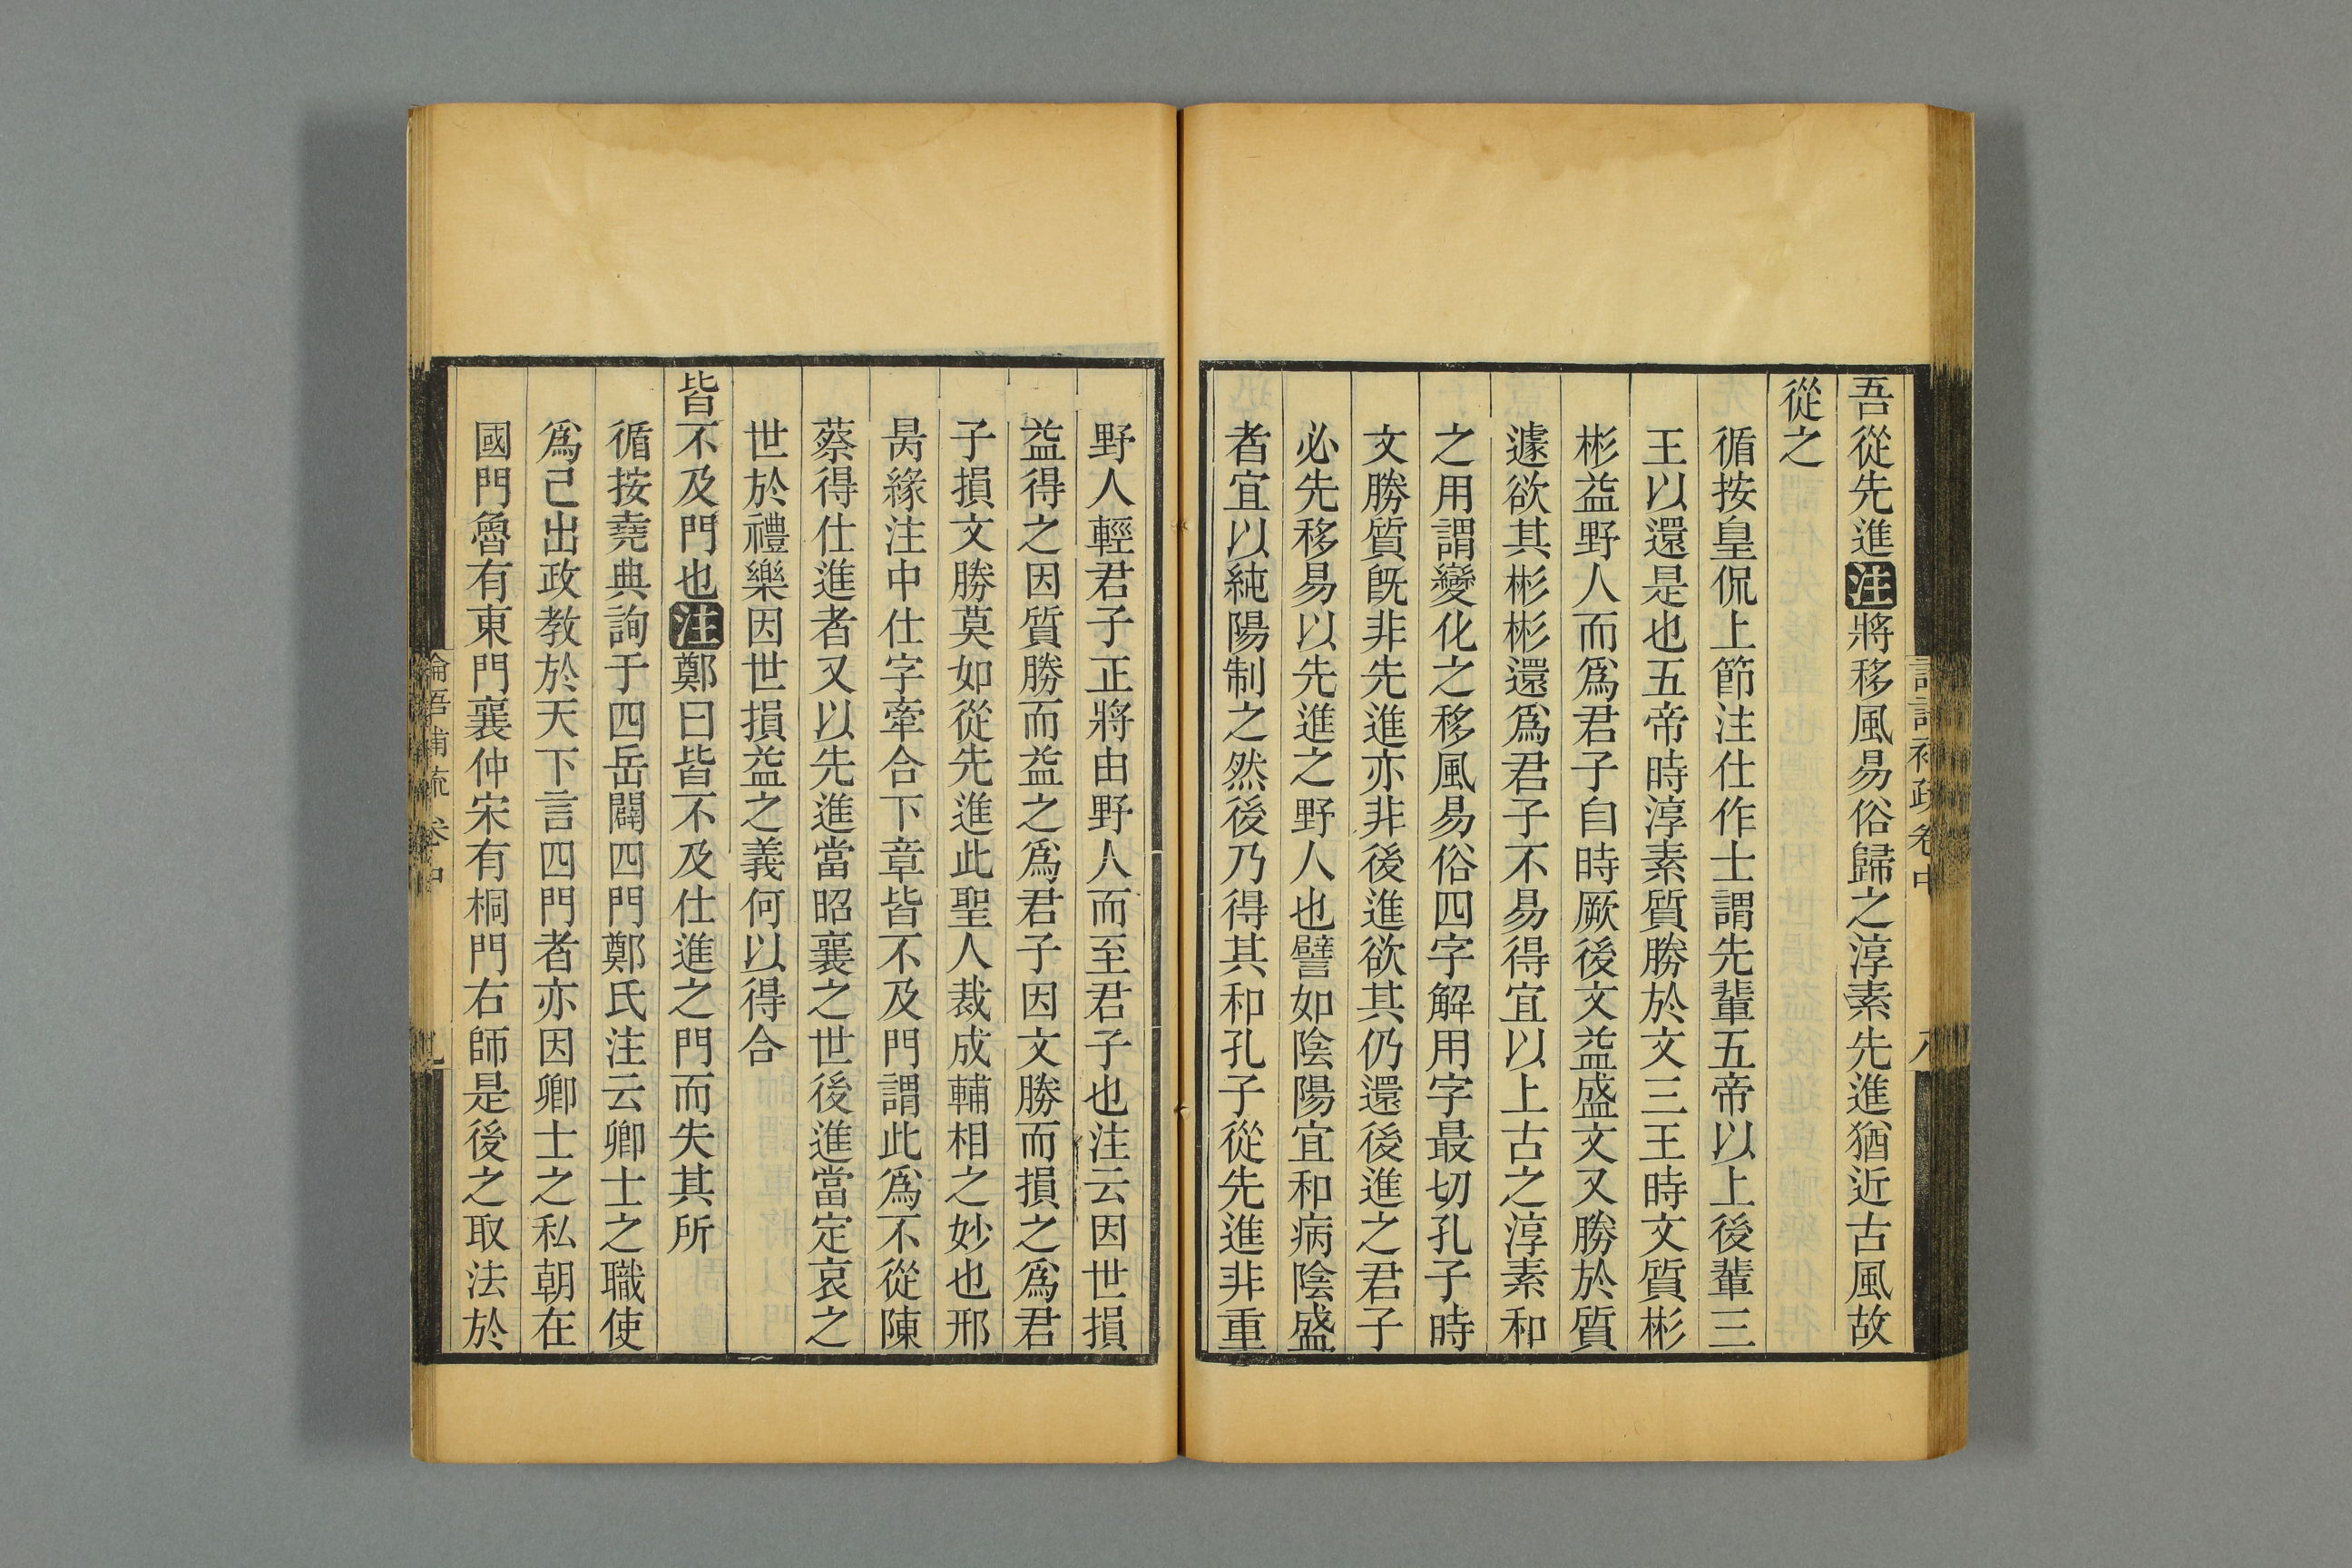 吾從先進注將移風易俗歸之淳素先進猶近古風故
從之
循按皇侃上節注仕作士謂先輩五帝以上後輩三
王以還是也五帝時淳素質勝於文三王時文質彬
彬益野人而爲君子自時厥後文益盛文又勝於質
遽欲其彬彬還爲君子不易得宜以上古之淳素和
之用謂變化之移風易俗四字解用字最切孔子時
文勝質旣非先進亦非後進欲其仍還後進之君子
必先移易以先進之野人也譬如陰陽宜和病陰盛
者宜以純陽制之然後乃得其和孔子從先進非重
野人輕君子正將由野人而至君子也注云因世損
益得之因質勝而益之爲君子因文勝而損之爲君
子損文勝莫如從先進此聖人裁成輔相之妙也邢
昺緣注中仕字牽合下章皆不及門謂此爲不從陳
蔡得仕進者又以先進當昭襄之世後進當定哀之
世於禮樂因世損益之義何以得合
皆不及門也注鄭曰皆不及仕進之門而失其所
循按堯典詢于四岳闢四門鄭氏注云卿士之職使
爲己出政教於天下言四門者亦因卿士之私朝在
國門魯有東門襄仲宋有桐門右師是後之取法於
論語補疏 卷中